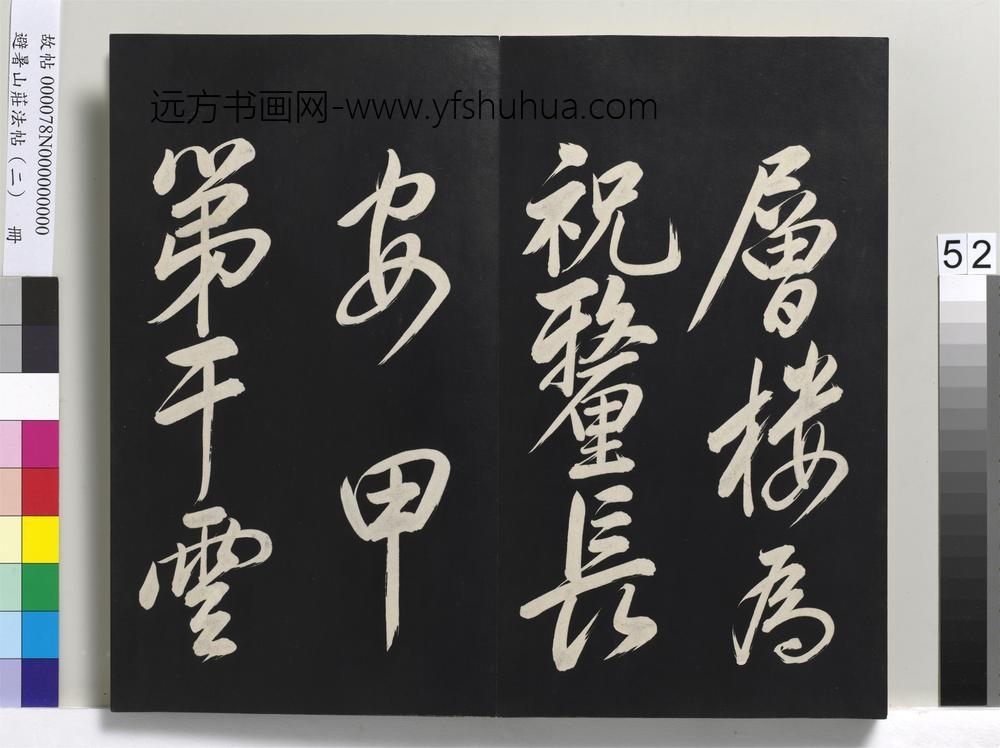 層樓為
祝釐長
安甲
第干雲
远方书画网-www.yfshuhua.com
故帖 000078N000000000
避暑山莊法帖（二） 冊
52